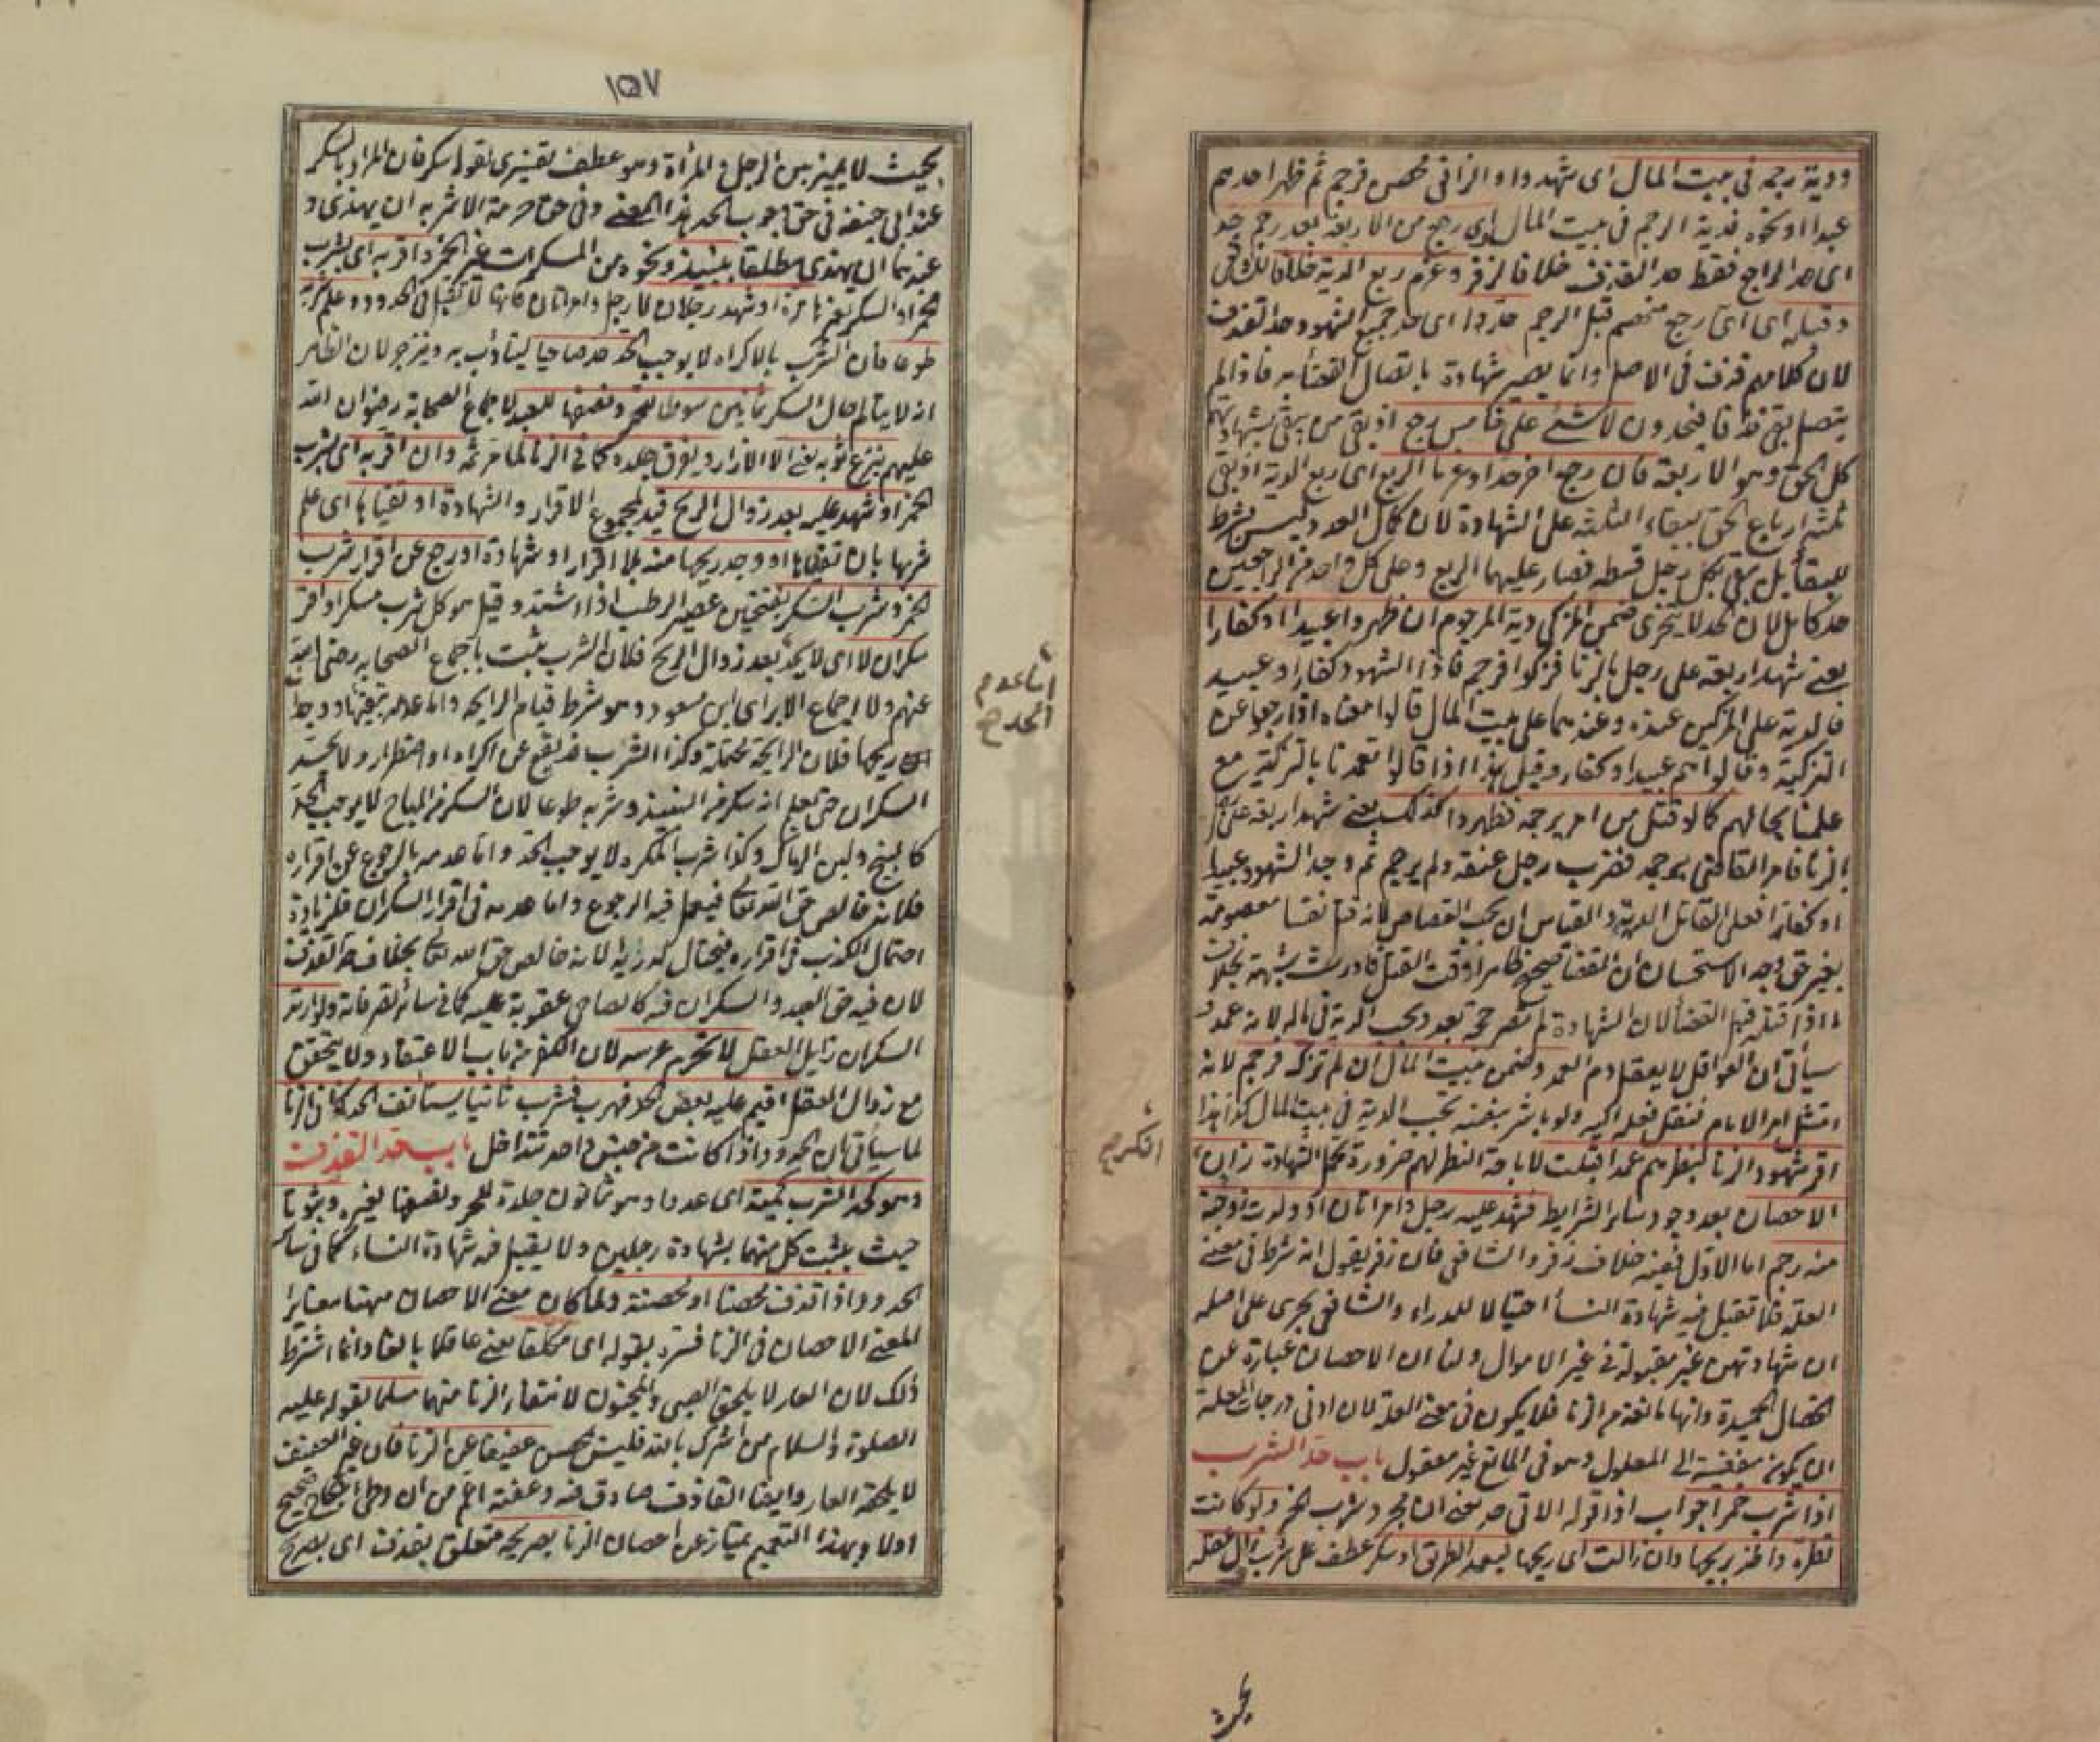 ودية رجمه في بيت المال اى شهدوا والزاني محصن فرجم ثم ظهر احدهم
عبدا او نحوه فدية الرجم في بيت المال واى رجع من الاربعة بعد رجم حد
اى حد الراجع فقط حد القذف خلافا لزفر وغرم ربع الدية خلافا للشافعى
وقبله اى اى رجع منهم قبل الرجم حدوا اى حد جميع الشهود حد القذف
لان كلامهم قذف في الاصل وانما يصير شهادة باتصال القضاء به فاذا لم
يتصل بقى قذفا فيحدون لا شئ على خامس رجع اذ بقى من يبقى بشهادتهم
كل الحق وهو الاربعة فان رجع اخر حدا وغرما الربع اى ربع الدية اذ بقى
ثلثة ارباع الحق ببقاء الثلثة على الشهادة لان كمال العدد ليس بشرط
للبقاء بل بقى بكل رجل قسطه فصار عليهما الربع وعلى كل واحد من الراجعين
حد كامل لان الحد لا يتجزى ضمن المزكى دية المرجوم ان ظهروا عبيدا او كفارا
يعنى شهد اربعة على رجل بالزنا فزكوا فرجم فاذا الشهود كفار او عبيد
فالدية على المزكين عنده وعندهما على بيت المال قالوا معناه اذا رجعوا عن
التزكية وقالوا هم عبيد او كفار وقيل هذا اذا قالوا تعمدنا بالتزكية مع
علمنا بحالهم كما لو قتل من امر برجمه فظهروا كذلك يعنى شهد اربعة على رجل
بالزنا فامر القاضى برجمه فضرب رجل عنقه ولم يرجم ثم وجد الشهود عبيدا
او كفارا فعلى القاتل الدية والقياس ان يجب القصاص لانه قتل نفسا معصومة
بغير حق وجه الاستحسان ان القضا صحيح ظاهرا وقت القتل فاورث شبهة بخلاف
ما اذا قتله قبل القضا لان الشهادة لم تصر حجة بعد ويجب الدية في ماله لانه عمد و
سيأتى ان العواقل لا يعقل دم العمد وضمن بيت المال ان لم تزك فرجم لانه
امتثل امر الامام فنقل فعله اليه ولو باشر بنفسه تجب الدية في بيت المال كذا هذا
اقر شهود الزنا بنظرهم عمدا قبلت لاباحة النظر لهم ضرورة تحمل الشهادة زان
الاحصان بعد وجود سائر الشرايط فشهد عليه رجل وامراتان او ولدت زوجته
منه رجم اما الاول ففيه خلاف زفر والشافعى فان زفر يقول انه شرط في معنى
العلة فلا تقبل فيه شهادة النسا احتيالا للدراء والشافعى يجرى على اصله
ان شهادتهن غير مقبولة في غير الاموال ولنا ان الاحصان عبارة عن
الخصال الحميدة وانها مانعة من الزنا فلا يكون في معنى العلة لان ادنى درجات العلة
ان يكون مفضية الى المعلول وهو في المانع غير معقول باب حد الشرب
اذا شرب خمرا جواب اذا قوله الاتى حد يعنى ان بمجرد شرب الخمر ولو كانت
قطرة واخذ بريحها وان زالت اى ريحها لبعد الطريق او سكر عطف على شرب زال عقله
بحيث
الكرح
١٥٧
بحيث لا يميز بين الرجل والمرأة وهو عطف تفسيرى لقوله سكر فان المراد بالسكر
عند ابى حنيفة في حق وجوب الحد هذا المعنى وفي حق حرمة الاشربه ان يهذى و
عندهما ان يهذى مطلقا بنبيذ ونحوه من المسكرات غير الخمر واقر به اى بشرب
الخمر او السكر بغيرها مرة او شهد رجلان لا رجل وامراتان فانها لا تقبل في الحدود وعلم شربه
طوعا فان الشرب بالاكراه لا يوجب الحد حد صاحيا ليتأدب به وينزجر لان الظاهر
انه لا يتألم حال السكر ثمانين سوطا للحر ونصفها للعبد لاجماع الصحابة رضوان الله
عليهم ينزع ثوبه يعنى الا الازار ويفرق جلده كما في الزنا لما مر ثمه وان اقر به اى بشرب
الخمر او شهد عليه بعد زوال الريح قيد لمجموع الاقرار والشهادة او تقيأها اى علم
شربها بان تقيأها او وجد ريحها منه بلا اقرار او شهادة او رجع عن اقرار شرب
الخمر وشرب السكر بفتحتين عصير الرطب اذا اشتد وقيل هو كل شرب مسكر او اقر
سكران لا اى لا يحد بعد زوال الريح فلان الشرب ثبت باجماع الصحابه رضى الله
عنهم ولا اجماع الا براى ابن مسعود وهو شرط قيام الرايحه واما عدمه بتقيئها ووجد
ريحها فلان الرايحة محتملة وكذا الشرب قد يقع عن اكراه او اضطرار ولا يحد
السكران حتى يعلم انه سكر من النبيذ وشربه طوعا لان السكر من المباح لا يوجب الحد
كالبنج ولبن الرماك وكذا شرب المكره لا يوجب الحد واما عدمه بالرجوع عن اقراره
فلانه خالص حق الله تعالى فيعمل فيه الرجوع واما عدمه في اقرار السكران فلزيادة
احتمال الكذب في اقراره فيحتال لدرئه لانه خالص حق الله تعالى بخلاف حد القذف
لان فيه حق العبد والسكران فيه كالصاحى عقوبة عليه كما في سائر تصرفاته ولو ارتد
السكران زايل العقل لا تحرم عرسه لان الكفر من باب الاعتقاد ولا يتحقق
مع زوال العقل اقيم عليه بعض الحد فهرب فشرب ثانيا يستأنف الحد كما في الزنا
لما سيأتى ان الحدود اذا كانت من جنس واحد تتداخل باب حد القذف
وهو كحد الشرب كمية اى عددا وهو ثمانون جلدة للحر ونصفها لغيره وثبوتا
حيث يثبت كل منهما بشهادة رجلين ولا يقبل فيه شهادة النساء كما في سائر
الحدود واذا قذف محصنا او محصنة ولما كان معنى الاحصان ههنا مغايرا
لمعنى الاحصان في الزنا فسره بقوله اى مكلفا يعنى عاقلا بالغا وانما اشترط
ذلك لان العار لا يلحق الصبى والمجنون لانتفاء الزنا منهما مسلما لقوله عليه
الصلوة والسلام من اشرك بالله فليس بمحصن عفيفا عن الزنا فان غير العفيف
لا يلحقه العار وايضا القاذف صادق فيه وعفته اعم من ان وطى بنكاح صحيح
اولا وبهذا التعميم يمتاز عن احصان الزنا بصريحه متعلق بقذف اى بصريح
اما عدم
الحد ح